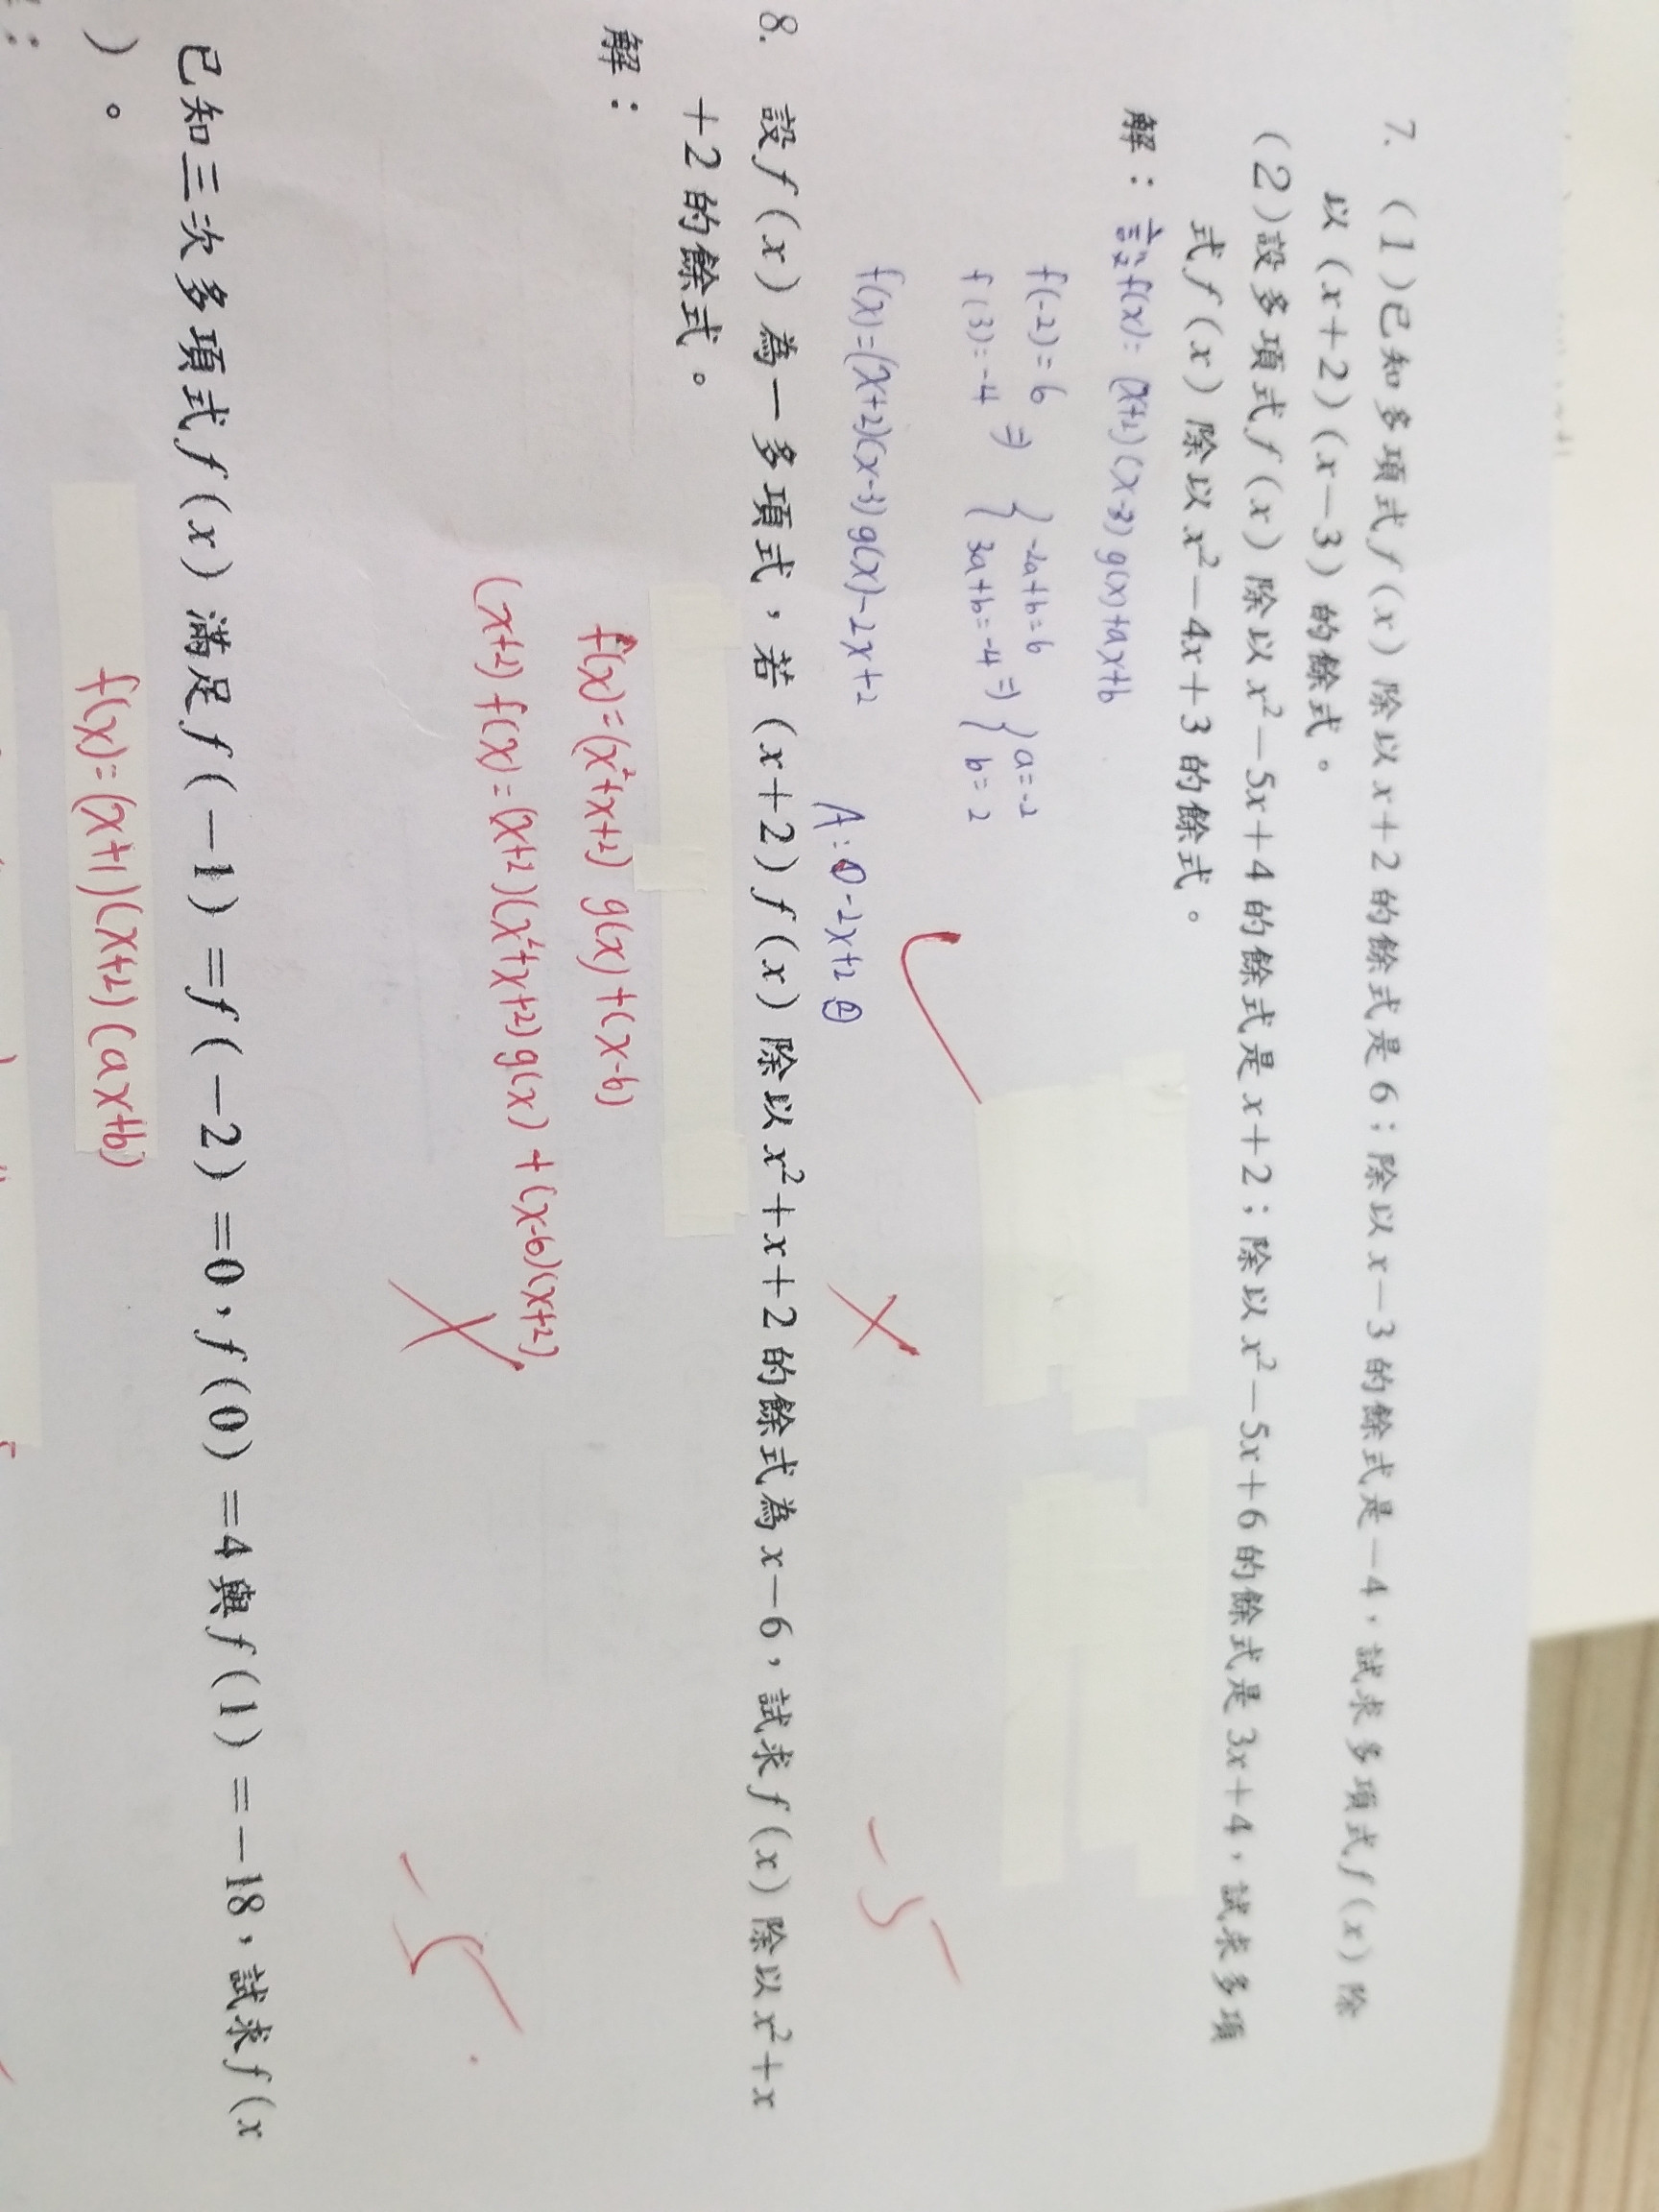 7. (1)已知多項式f(x)除以x+2的餘式是6;除以x-3的餘式是-4,試求多項式f(x)除
以(x+2)(x-3)的餘式。
(2)設多項式f(x)除以x²-5x+4的餘式是x+2;除以x²-5x+6的餘式是3x+4,試求多項
式f(x)除以x²-4x+3的餘式。
解:設f(x)=(x+2)(x-3)g(x)+ax+b
f(-2)=6
f(3)=-4 ⇒ { -2a+b=6 3a+b=-4 ⇒ { a=-2 b=2
f(x)=(x+2)(x-3)g(x)-2x+2
A:① -2x+2 ②
-5
8. 設f(x)為一多項式,若(x+2)f(x)除以x²+x+2的餘式為x-6,試求f(x)除以x²+x
+2的餘式。
解:
f(x)=(x²+x+2) g(x)+(x-6)
(x+2)f(x)=(x+2)(x²+x+2)g(x)+(x-6)(x+2)
-5
已知三次多項式f(x)滿足f(-1)=f(-2)=0,f(0)=4與f(1)=-18,試求f(x
)。
f(x)=(x+1)(x+2)(ax+b)